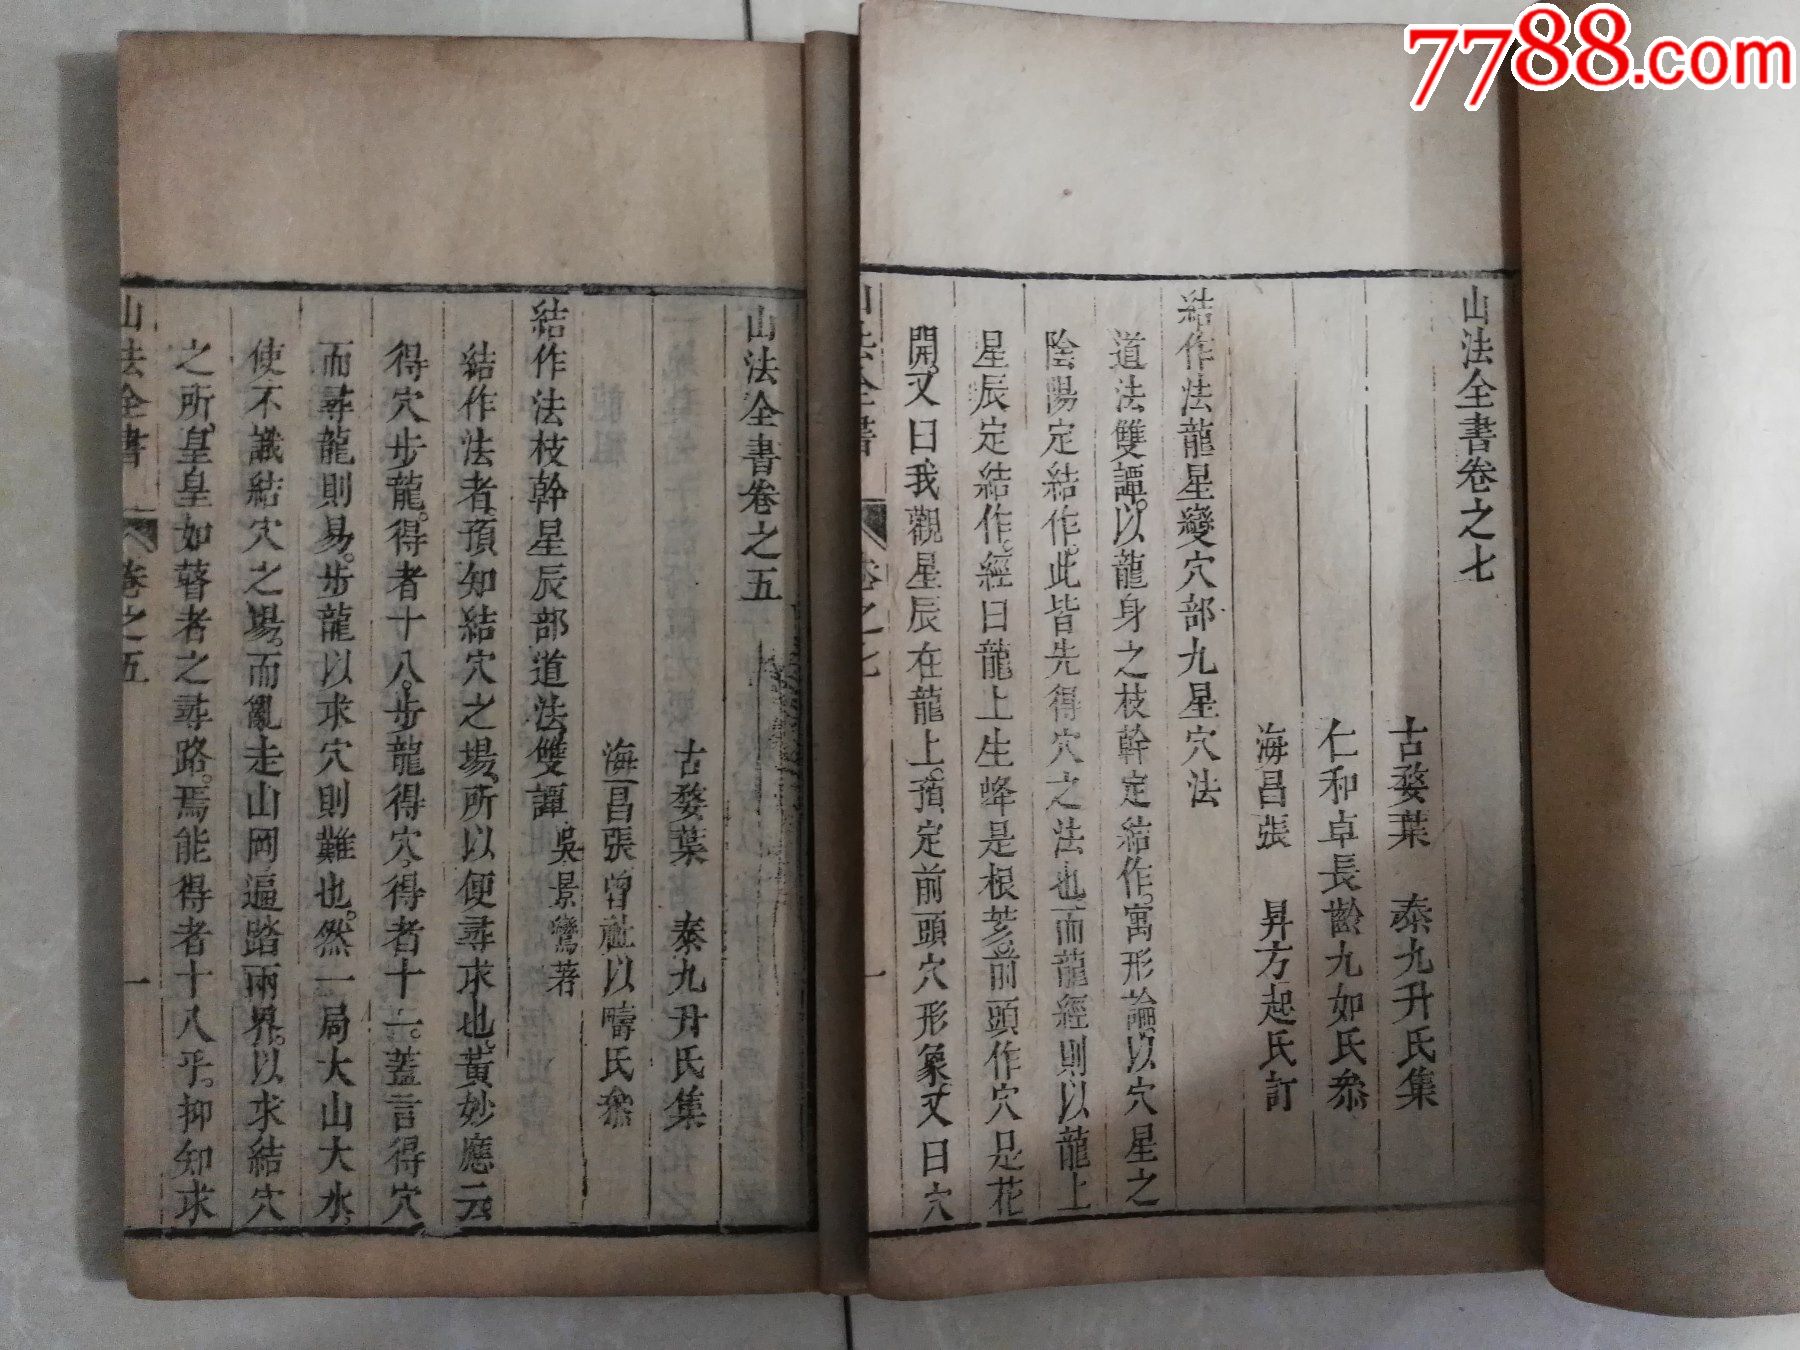 7788.com
山法全書卷之七
古婺葉 泰九升氏集
仁和卓長齡九如氏叅
海昌張 昇方起氏訂
結作法龍星變穴部九星穴法
道法雙譚。以龍身之枝幹定結作。寓形論。以穴星之
陰陽定結作。此皆先得穴之法也。而龍經則以龍上
星辰定結作。經曰龍上生峰是根荄。前頭作穴是花
開。又曰我觀星辰在龍上。預定前頭穴形象。又曰穴
山法全書
卷之七
一
山法全書卷之五
古婺葉 泰九升氏集
海昌張曾祉以疇氏叅
結作法枝幹星辰部道法雙譚 吳景鸞著
結作法者。預知結穴之場。所以便尋求也。黃妙應云
得穴步龍。得者十八。步龍得穴。得者十一。蓋言得穴
而尋龍則易。步龍以求穴則難也。然一局大山大水。
使不識結穴之場。而亂走山岡。遍踏兩界。以求結穴
之所。皇皇如瞽者之尋路。焉能得者十八乎。抑知求
山法全書
卷之五
一